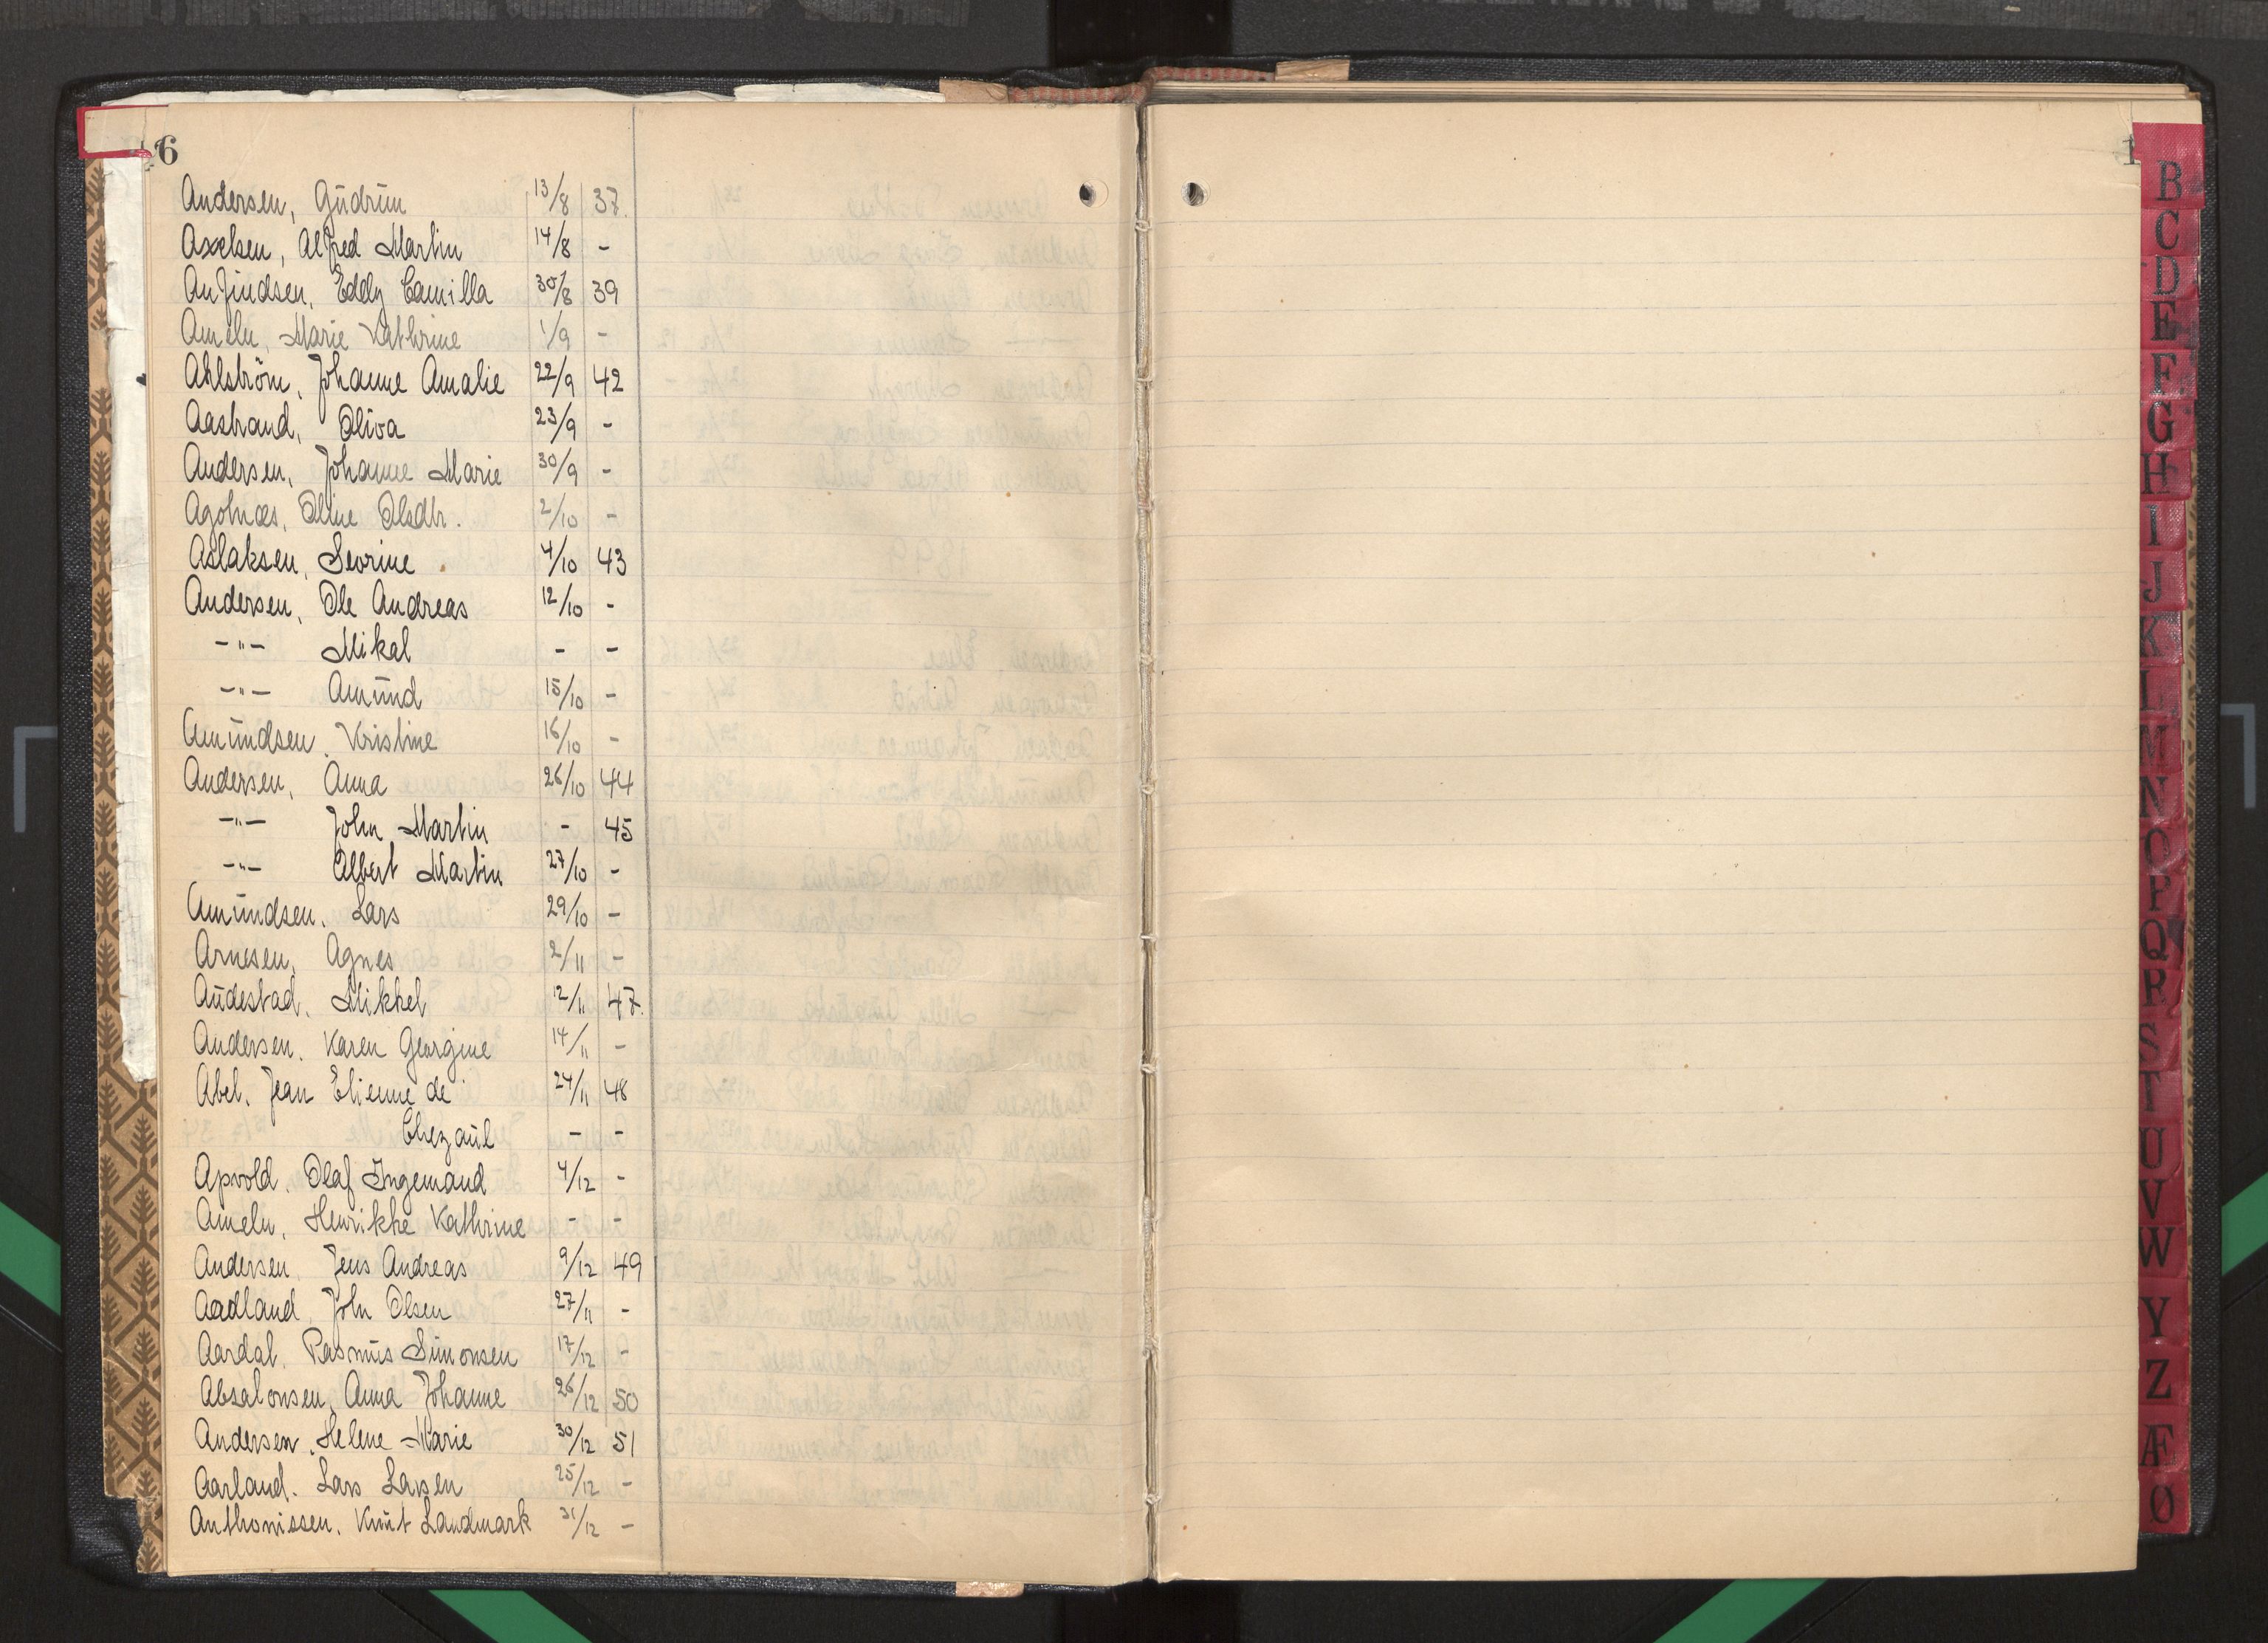 6
Andersen, Gudrun 13/8 37.
Axelsen, Alfred Martin 14/8 -
Anfindsen, Eddy Camilla 30/8 39
Ameln, Marie Kathrine 1/9 -
Ahlström, Johanne Amalie 22/9 42
Aastrand, Oliva 23/9 -
Andersen, Johanne Marie 30/9 -
Agotnæs, Oline Olsdtr. 2/10 -
Aslaksen, Sevrine 4/10 43
Andersen, Ole Andreas 12/10 -
-"- Mikal - -
-"- Amund 15/10 -
Amundsen, Kristine 16/10 -
Andersen, Anna 26/10 44
-"- John Martin - 45
-"- Albert Martin 27/10 -
Amundsen, Lars 29/10 -
Arnesen, Agnes 2/11 -
Audestad, Mikkel 12/11 47.
Andersen, Karen Georgine 14/11 -
Abel, Jean Etienne de 24/11 48
Chezaul - -
Apvold, Olaf Ingemand 4/12 -
Ameln, Henrikke Kathrine - -
Andersen, Jens Andreas 9/12 49
Aadland, John Olsen 27/11 -
Aardal, Rasmus Simonsen 17/12 -
Absalonsen, Anna Johanne 26/12 50
Andersen, Helene Marie 30/12 51
Aarland, Lars Larsen 25/12 -
Anthonissen, Knut Landmark 31/12 -
B
C
D
E
F
G
H
I
J
K
L
M
N
O
P
Q
R
S
T
U
V
W
Y
Z
Æ
Ø